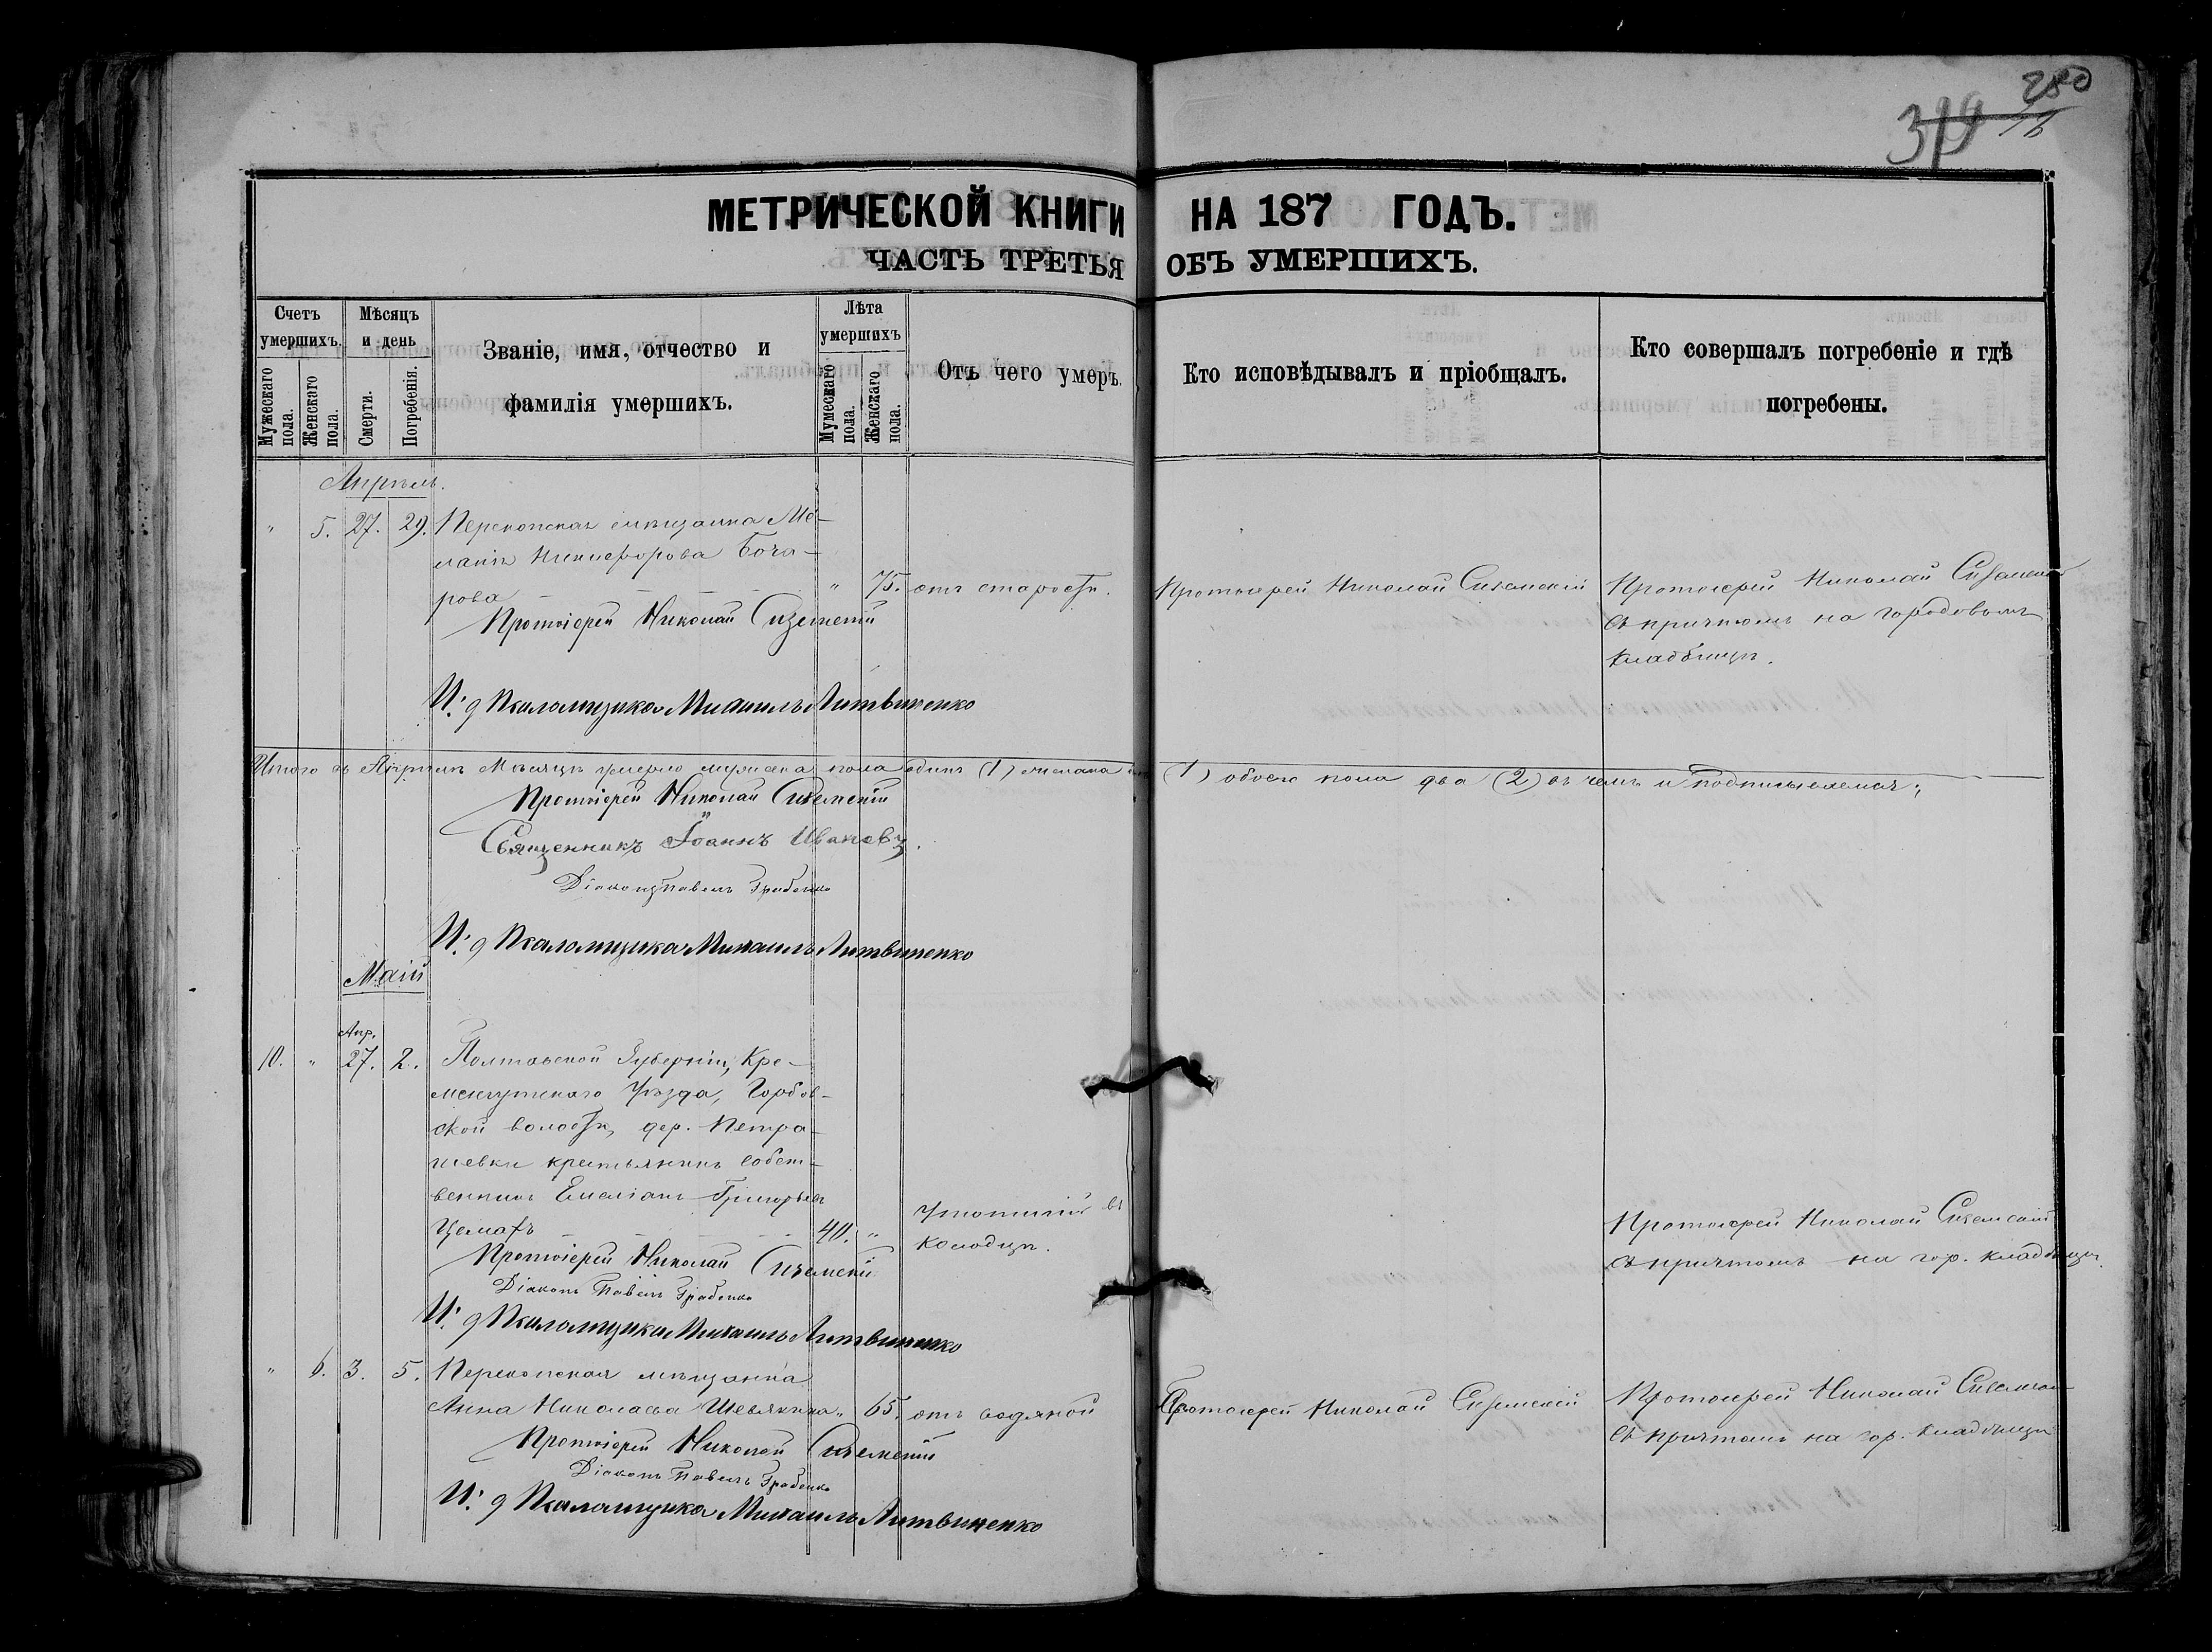 280
МЕТРИЧЕСКОЙ КНИГИ НА 187 ГОДЪ.
ЧАСТЬ ТРЕТЬЯ ОБЪ УМЕРШИХЪ.
Счетъ умершихъ.
Мужескаго пола.
Женскаго пола.
Мѣсяцъ и день
Смерти.
Погребенія.
Званіе, имя, отчество и
фамилія умершихъ.
Лѣта умершихъ
Мужескаго пола.
Женскаго пола.
Отъ чего умеръ.
Кто исповѣдывалъ и пріобщалъ.
Кто совершалъ погребеніе и гдѣ
погребены.
Апрѣль.
" 5. 27. 29. Перекопская мѣщанка Ме-
ланія Никифорова Боча-
рова " 75. отъ старости. Протоіерей Николай Сиземскій Протоіерей Николай Сиземскій
съ причтомъ на городовомъ
кладбищѣ.
Протоіерей Николай Сиземскій
И. д Псаломщика Михаилъ Литвиненко
Итого въ Апрѣлѣ Мѣсяцѣ умерло мужеска пола одинъ (1) женска (1) обоего пола два (2) въ чемъ и подписываемся:
Протоіерей Николай Сиземскій
Священникъ Іоаннъ Ивановъ.
Діаконъ Павелъ Грабенко
И. д Псаломщика Михаилъ Литвиненко
Маій
Апр.
10. " 27. 2. Полтавской Губерніи, Кре-
менчугскаго Уѣзда,
ской волости, дер. Петра-
шевки крестьянинъ собст-
венникъ Емеліанъ Григорьевъ
40. " Утопшій въ
колодцѣ.
Протоіерей Николай Сиземскій
съ причтомъ на гор. кладбищѣ.
Протоіерей Николай Сиземскій
Діаконъ Павелъ Грабенко
И. д Псаломщика Михаилъ Литвиненко
" 6. 3. 5. Перекопская мѣщанка
Анна Николаева " 65. отъ водяной Протоіерей Николай Сиземскій Протоіерей Николай Сиземскій
съ причтомъ на гор. кладбищѣ
Протоіерей Николай Сиземскій
Діаконъ Павелъ Грабенко
И. д Псаломщика Михаилъ Литвиненко